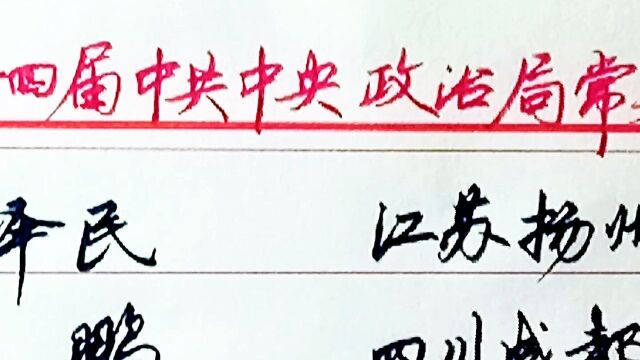 十四届中共中央政治局常
泽民 江苏扬州
鹏 四川成都